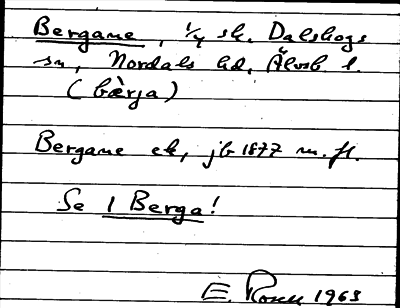 Bergane, 1/4 sk. Dalskogs
sn, Nordals hd, Älvsb l.
(bæ̀rja)
Bergane ek, jb 1877 m. fl.
Se 1 Berga!
E. Rosell 1963